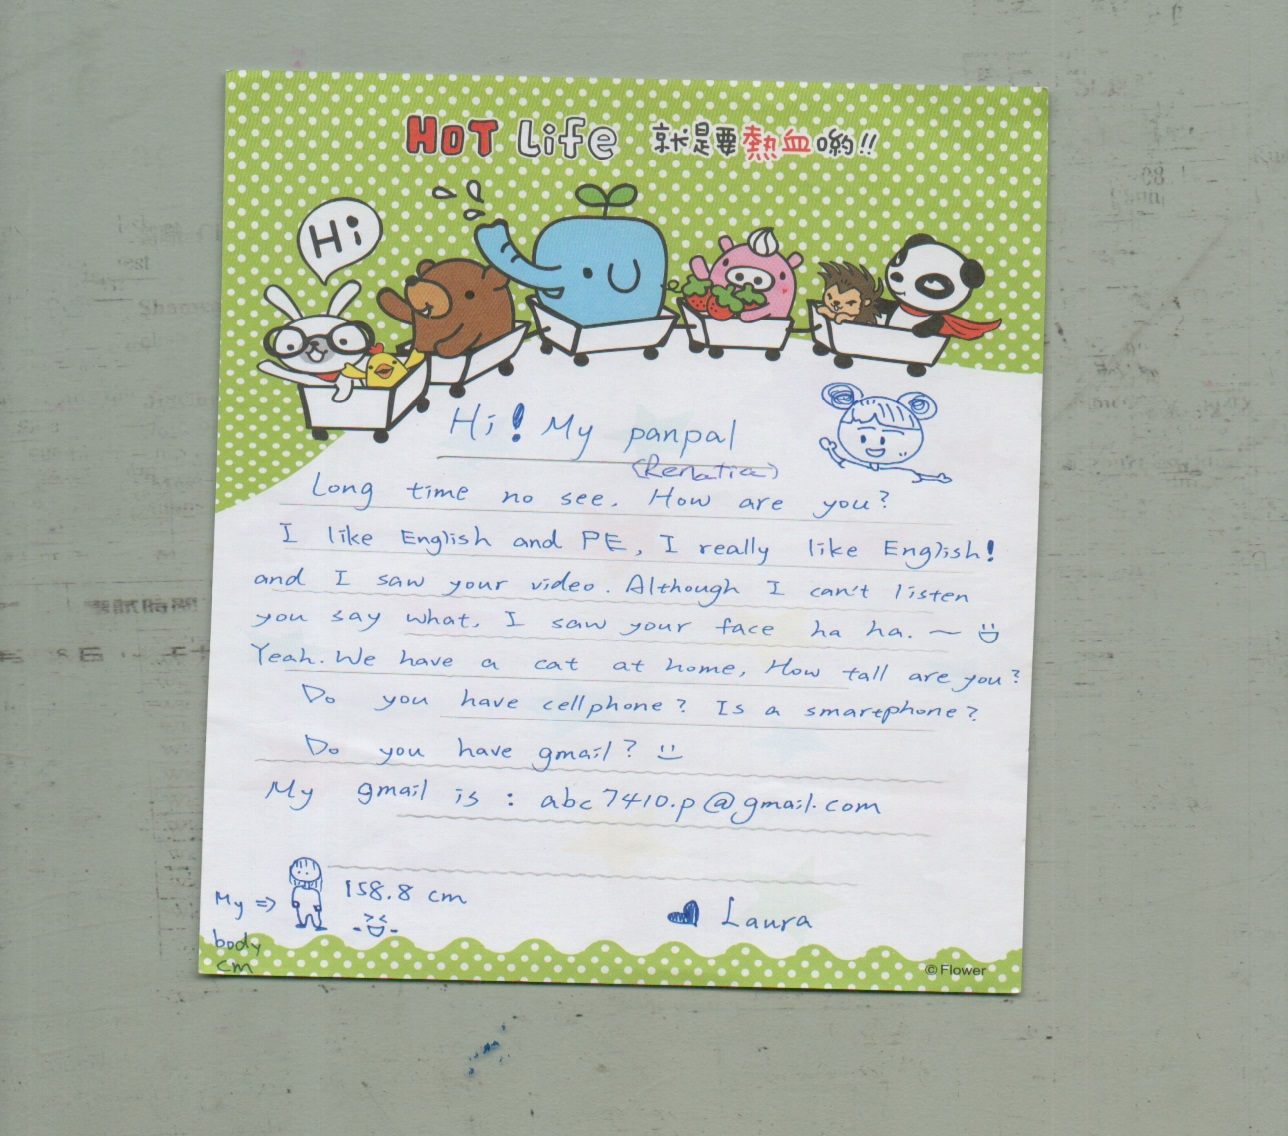 HOT Life 就是要熱血喲!!
Hi
Hi! My panpal
(Renatia)
Long time no see. How are you?
I like English and PE, I really like English!
and I saw your video. Although I can't listen
you say what, I saw your face ha ha. ~
Yeah. We have a cat at home, How tall are you?
Do you have cellphone? Is a smartphone?
Do you have gmail?
My gmail is : abc7410.p@gmail.com
My => 158.8 cm
body
cm
Laura
©Flower